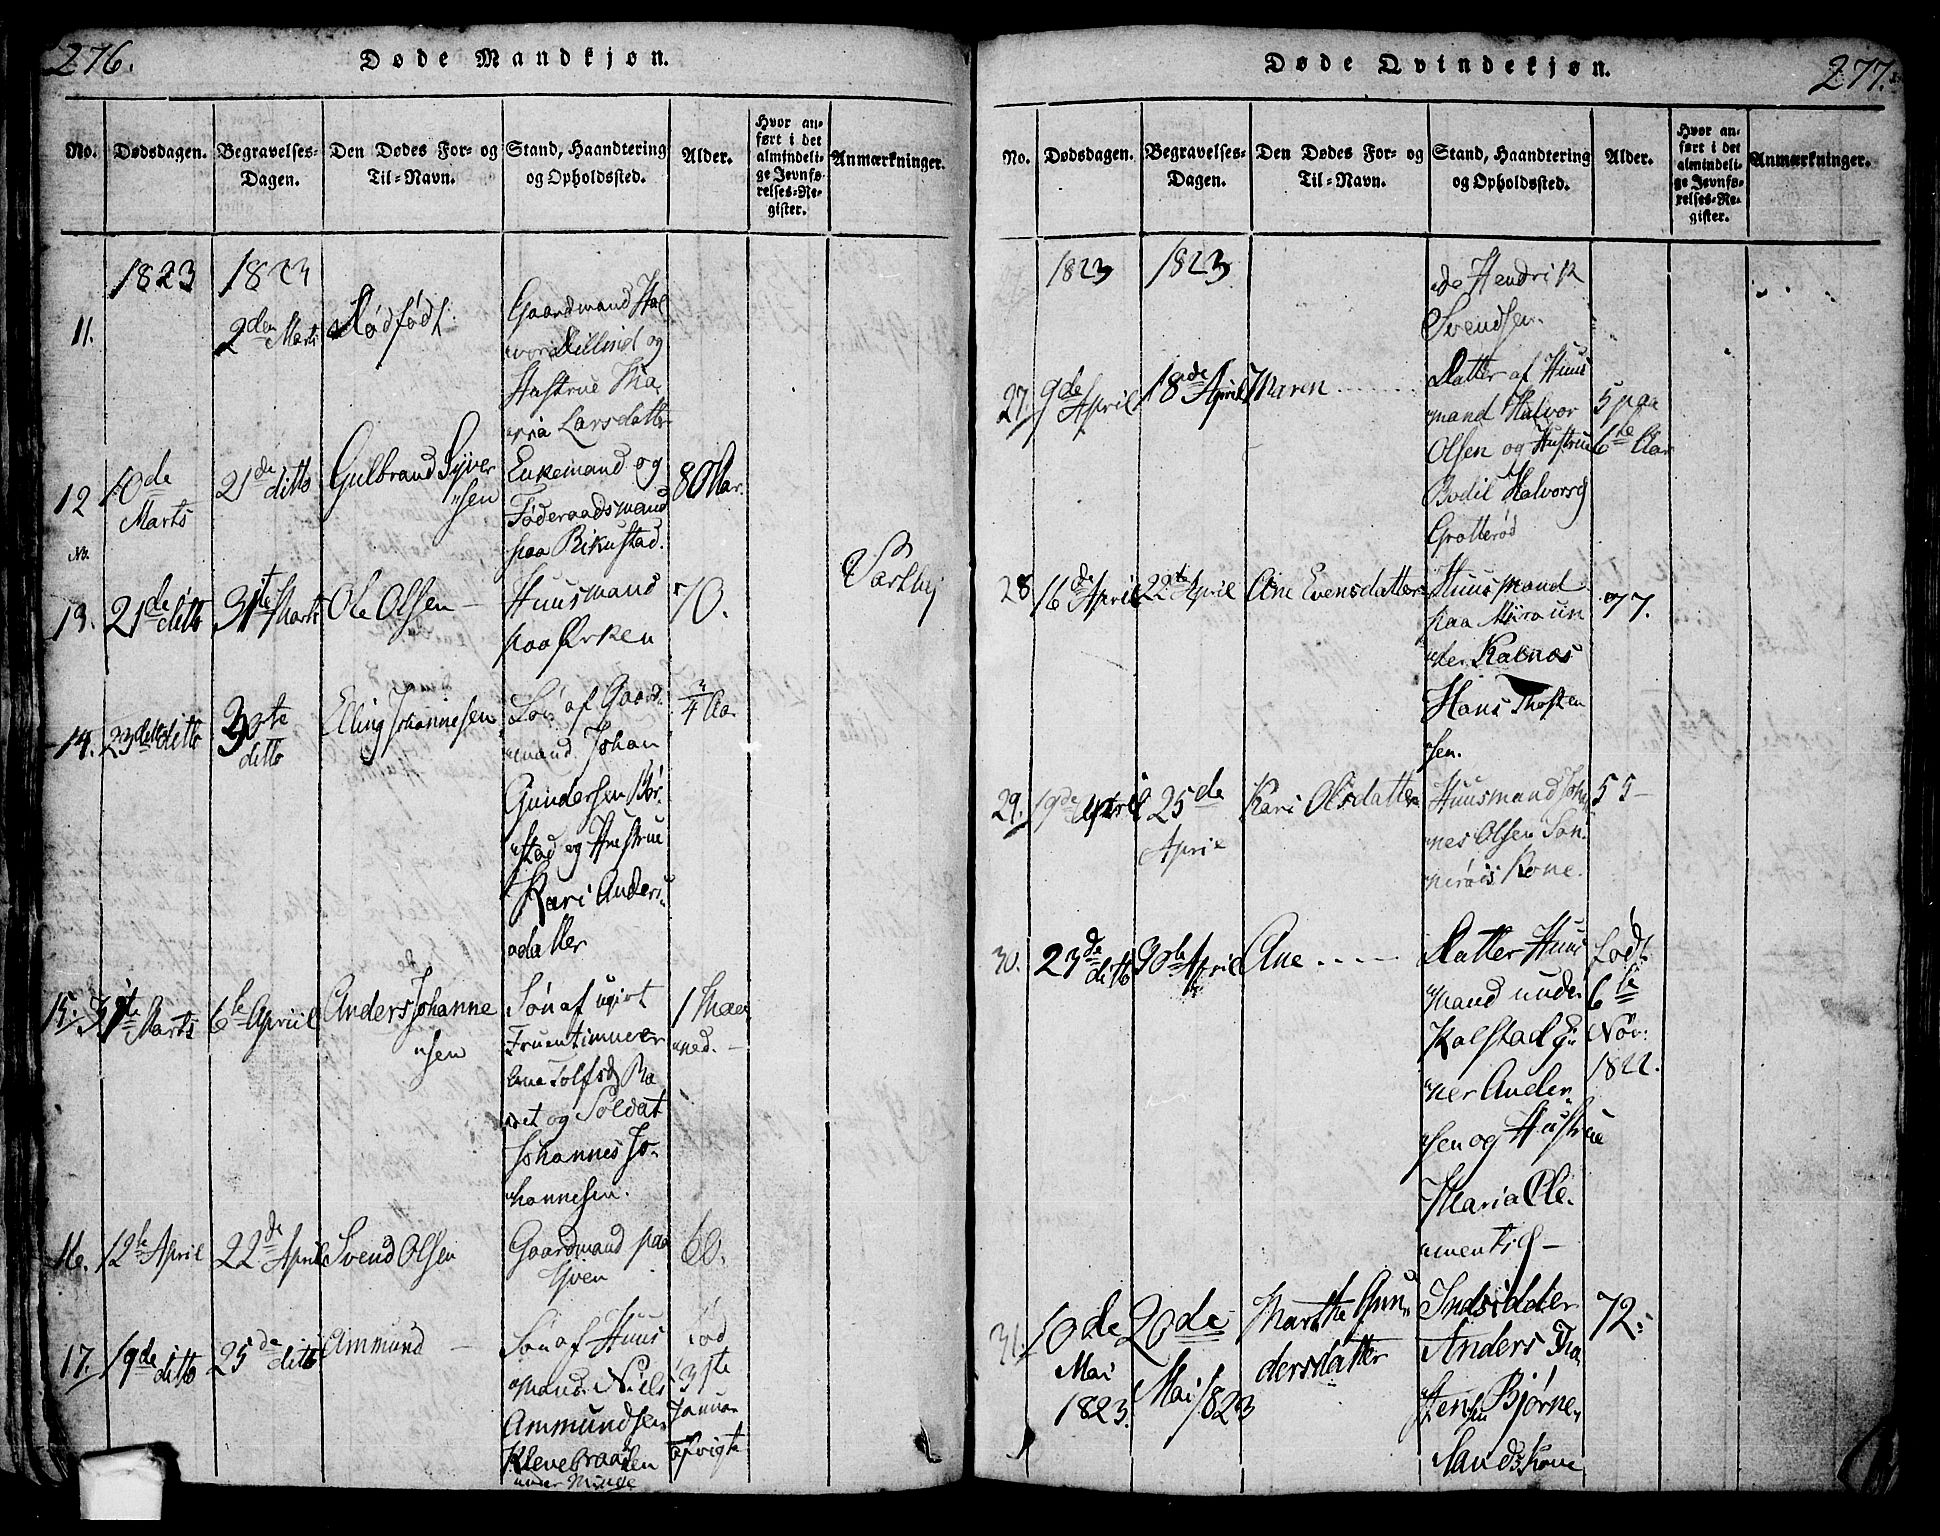 276.
Døde Mandkjøn.
No.
Dødsdagen.
Begravelses-
Dagen.
Den Dødes For- og
Til-Navn.
Stand, Haandtering
og Opholdssted.
Alder.
Hvor an-
ført i det
almindeli-
ge Jevnfø-
relses-Re-
gister.
Anmærkninger.
1823
1823
11.
2den Marts
Dødfødt.
Gaardmand Hal
vor Lillind og
Hustrue Ma
ria Larsdatter
12
10de
Marts
21de ditto
Gulbrand Syver
sen
Enkemand og
Føderaadsmand
paa Rikustad.
80 Aar.
NB.
13.
21de ditto
31te Marts
Ole Olsen –
Huusmand
paa Ørken
70.
14.
23de ditto
30te
ditto
Elling Johannesen
Søn af Gaard
mand Johan
Gundersen Bør
stad og Hustrue
Kari Anders
datter
3/4 Aar
15.
31te Marts
6te Apriil
Anders Johanne
sen
Søn af ugivt
Fruentimmer
Ane Tolfsd
et og Soldat
Johannes Jo-
hannesen.
1 Maa
ned. –
16.
12te April
22de April
Svend Olsen
Gaardmand paa
Hven
60.
17.
19de
ditto
25de ditto
Ammund –
Søn af Huus
mand Niels
Ammundsen
Klevebraaden
under Minde
Fød
31te
Januar
afvigte
277.
Døde Qvindekjøn.
No.
Dødsdagen.
Begravelses-
Dagen.
Den Dødes For- og
Til-Navn.
Stand, Haandtering
og Opholdssted.
Alder.
Hvor an-
ført i det
almindeli-
ge Jevnfø-
relses-Re-
gister.
Anmærkninger.
1823
1823
de Hendrik
Svendsen.
27.
9de
April
18de April
Maren
Datter af Huus
mand Halvor
Olsen og Hustrue
Bodil Halvorsd
Grotterød
5 paa
6te Aar
28
16de April
22de April
Ane Evensdatter
Huusmand
paa Myra un
der Kalnæs
Hans Thosten
sen.
77.
29.
19de April
25de
April
Kari Olsdatter
Huusmand Johan
nes Olsen Søn
Kone.
55 –
30.
23de
ditto
30te April
Ane
Datter Huus
mand under
Kolstad Ei
ner Ander
sen og Hustrue
Maria Cle-
mentsd –
født
6te
Nov:
1822.
31.
10de
Mai
1823.
20de
Mai 1823
Marthe Gun
dersdatter
Indsidder
Anders Tho
Bjørne
Sands Kone
72.